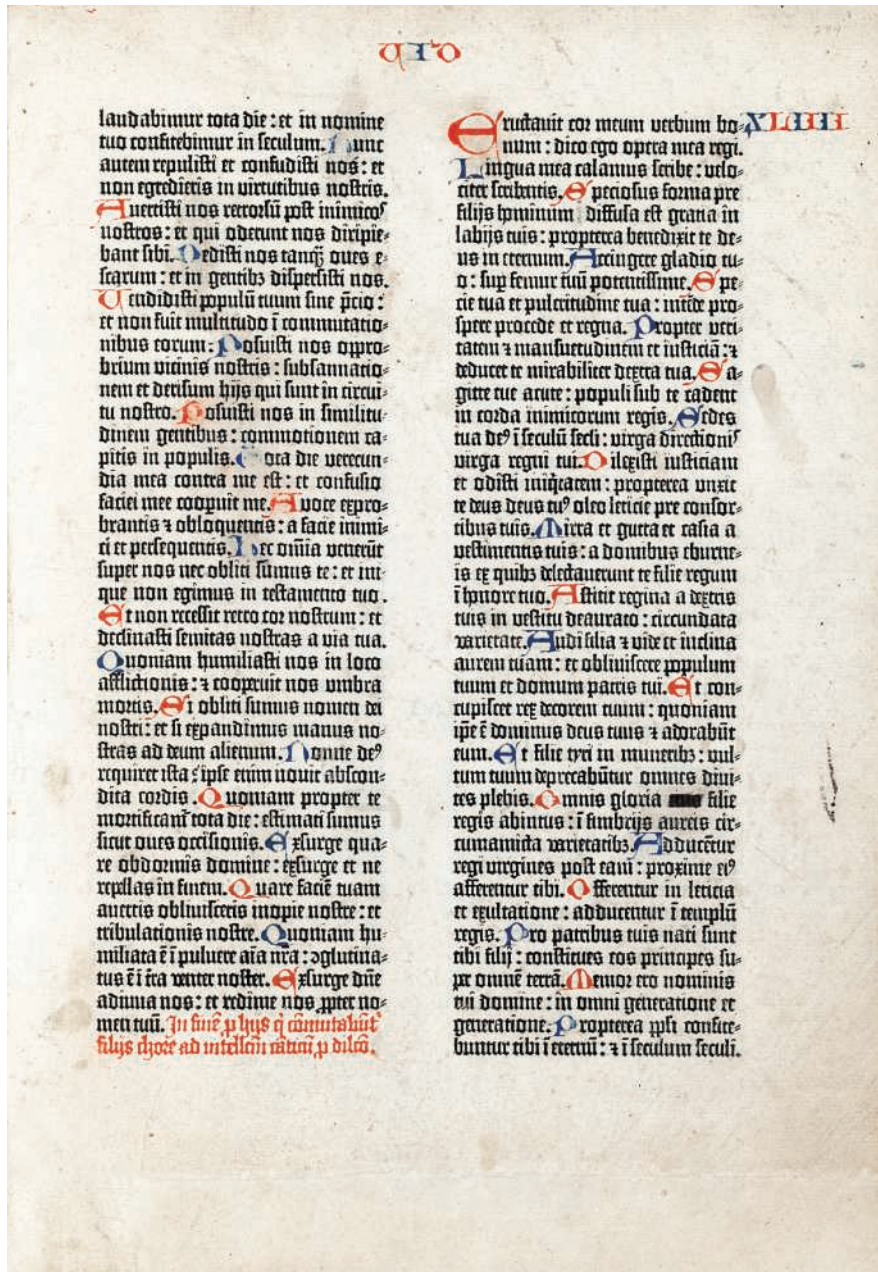 VID
laudabimur tota die : et in nomine
tuo confitebimur in seculum. Nunc
autem repulisti et confudisti nos : et
non egredieris in virtutibus nostris.
Avertisti nos retrorsū post inimicos
nostros : et qui oderunt nos diripie-
bant sibi. Dedisti nos tanqȝ oues e-
scarum : et in gentibȝ dispersisti nos.
Vendidisti populū tuum sine p̄cio :
et non fuit multitudo ī commutatio-
nibus eorum : Posuisti nos oppro-
brium vicinis nostris : subsannatio-
nem et derisum hijs qui sunt in circui-
tu nostro. Posuisti nos in similitu-
dinem gentibus : commotionem ca-
pitis in populis. Tota die verecun-
dia mea contra me est : et confusio
faciei mee cooꝑuit me. A voce expro-
brantis ⁊ obloquentis : a facie inimi-
ci et persequentis. Hec om̄ia venerūt
super nos nec obliti sumus te : et ini-
que non egimus in testamento tuo.
Et non recessit retro cor nostrum : et
declinasti semitas nostras a via tua.
Quoniam humiliasti nos in loco
afflictionis : ⁊ cooperuit nos umbra
mortis. Si obliti sumus nomen dei
nostri : et si expandimus manus no-
stras ad deum alienum. Nonne deꝰ
requiret ista? ipse enim novit abscon-
dita cordis. Quoniam propter te
mortificam̄ tota die : estimati sumus
sicut oues occisionis. Exsurge qua-
re obdormis domine : exsurge et ne
repellas in finem. Quare faciē tuam
avertis obliuisceris inopie nostre : et
tribulationis nostre. Quoniam hu-
miliata ē ī puluere aīa nr̄a : ꝯglutina-
tus ē ī tr̄a venter noster. Exsurge dn̄e
adiuva nos : et redime nos ꝓpter no-
men tuū. In finē ꝓ hijs q̄ cōmutabūt᷑
filijs chore ad intellectū cātici ꝓ dilc̄o.
Eructavit cor meum verbum bo- XLIIII
num : dico ego opera mea regi.
Lingua mea calamus scribe : velo-
citer scribentis. Speciosus forma pre
filijs hominum diffusa est gratia in
labijs tuis : propterea benedixit te de-
us in eternum. Accingere gladio tu-
o : suꝑ femur tuū potentissime. Spe-
cie tua et pulcritudine tua : intēde pro-
spere procede et regna. Propter veri-
tatem ⁊ mansuetudinem et iusticiā : ⁊
deducet te mirabiliter dextra tua. Sa-
gitte tue acute : populi sub te cadent
in corda inimicorum regis. Sedes
tua deꝰ ī seculū secl̄i : virga directionis
virga regni tui. Dilexisti iusticiam
et odisti iniq̄tatem : propterea unxit
te deus deus tuꝰ oleo leticie pre consor-
tibus tuis. Mirra et gutta et casia a
vestimentis tuis : a domibus eburne-
is ex quibȝ delectauerunt te filie regum
ī honore tuo. Astitit regina a dextris
tuis in vestitu deaurato : circundata
varietate. Audi filia ⁊ vide et inclina
aurem tuam : et obliuiscere populum
tuum et domum patris tui. Et con-
cupiscet rex decorem tuum : quoniam
ip̄e ē dominus deus tuus ⁊ adorabūt
eum. Et filie tyri in muneribȝ : vul-
tum tuum deprecabūtur omnes divi-
tes plebis. Omnis gloria filie
regis abintus : ī fimbrijs aureis cir-
cumamicta varietatibȝ. Adducētur
regi virgines post eam : proxime eiꝰ
afferentur tibi. Offerentur in leticia
et exultatione : adducentur ī templū
regis. Pro patribus tuis nati sunt
tibi filij : constitues eos principes su-
per omnē terrā. Memor ero nominis
tui domine : in omni generatione et
generatione. Propterea ppl̄i confite-
buntur tibi ī eternū : ⁊ ī seculum seculi.